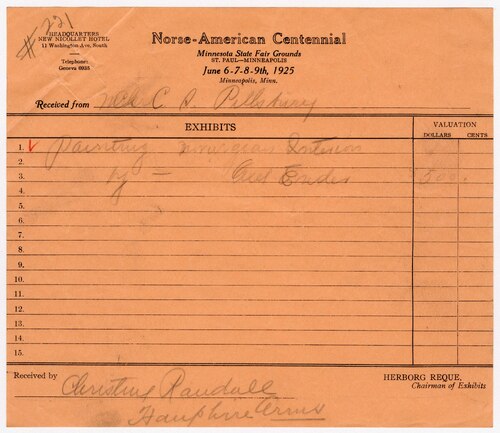 # 221
HEADQUARTERS
NEW NICOLLET HOTEL
11 Washington Ave. South
Telephone:
Geneva 6935
Norse-American Centennial
Minnesota State Fair Grounds
ST. PAUL—MINNEAPOLIS
June 6-7-8-9th, 1925
Minneapolis, Minn.
Received from C S Pillsbury
EXHIBITS
VALUATION
DOLLARS CENTS
1. Painting Norwegian Interior
2.
3. by — 500
4.
5.
6.
7.
8.
9.
10.
11.
12.
13.
14.
15.
Received by Christine Randall
Arms
HERBORG REQUE,
Chairman of Exhibits